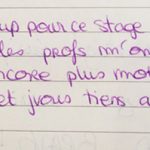 up pour ce stage
les profs m'on
ncore plus mot
et jvous tiens a